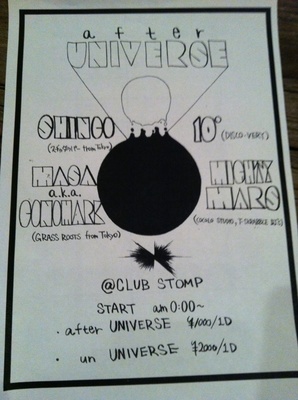 after
UNIVERSE
SHINGO
from Tokyo)
10°
(DISCO-VERY)
MASA
a.k.a.
CONOMARK
(GRASS ROOTS from Tokyo)
MIGHTY
MARS
@CLUB STOMP
START am0:00~
・after UNIVERSE ¥1000/1D
・un UNIVERSE ¥2000/1D